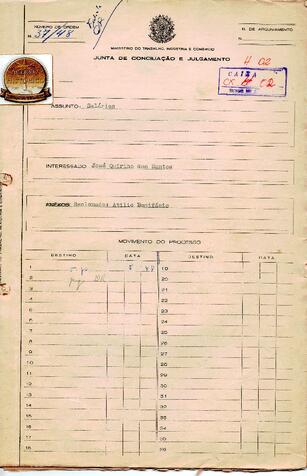 NÚMERO DE ORDEM
N. 37/48
N. DE ARQUIVAMENTO
N.
MINISTÉRIO DO TRABALHO, INDÚSTRIA E COMÉRCIO
JUNTA DE CONCILIAÇÃO E JULGAMENTO
4 02
CAIXA
ASSUNTO: Salários
INTERESSADO José Quirino dos Santos
ANEXOS Reclamado: Atilio Bonifácio
MOVIMENTO DO PROCESSO
DESTINO DATA DESTINO DATA
1 19
2 20
3 21
4 22
5 23
6 24
7 25
8 26
9 27
10 28
11 29
12 30
13 31
14 32
15 33
16 34
17 35
18 36